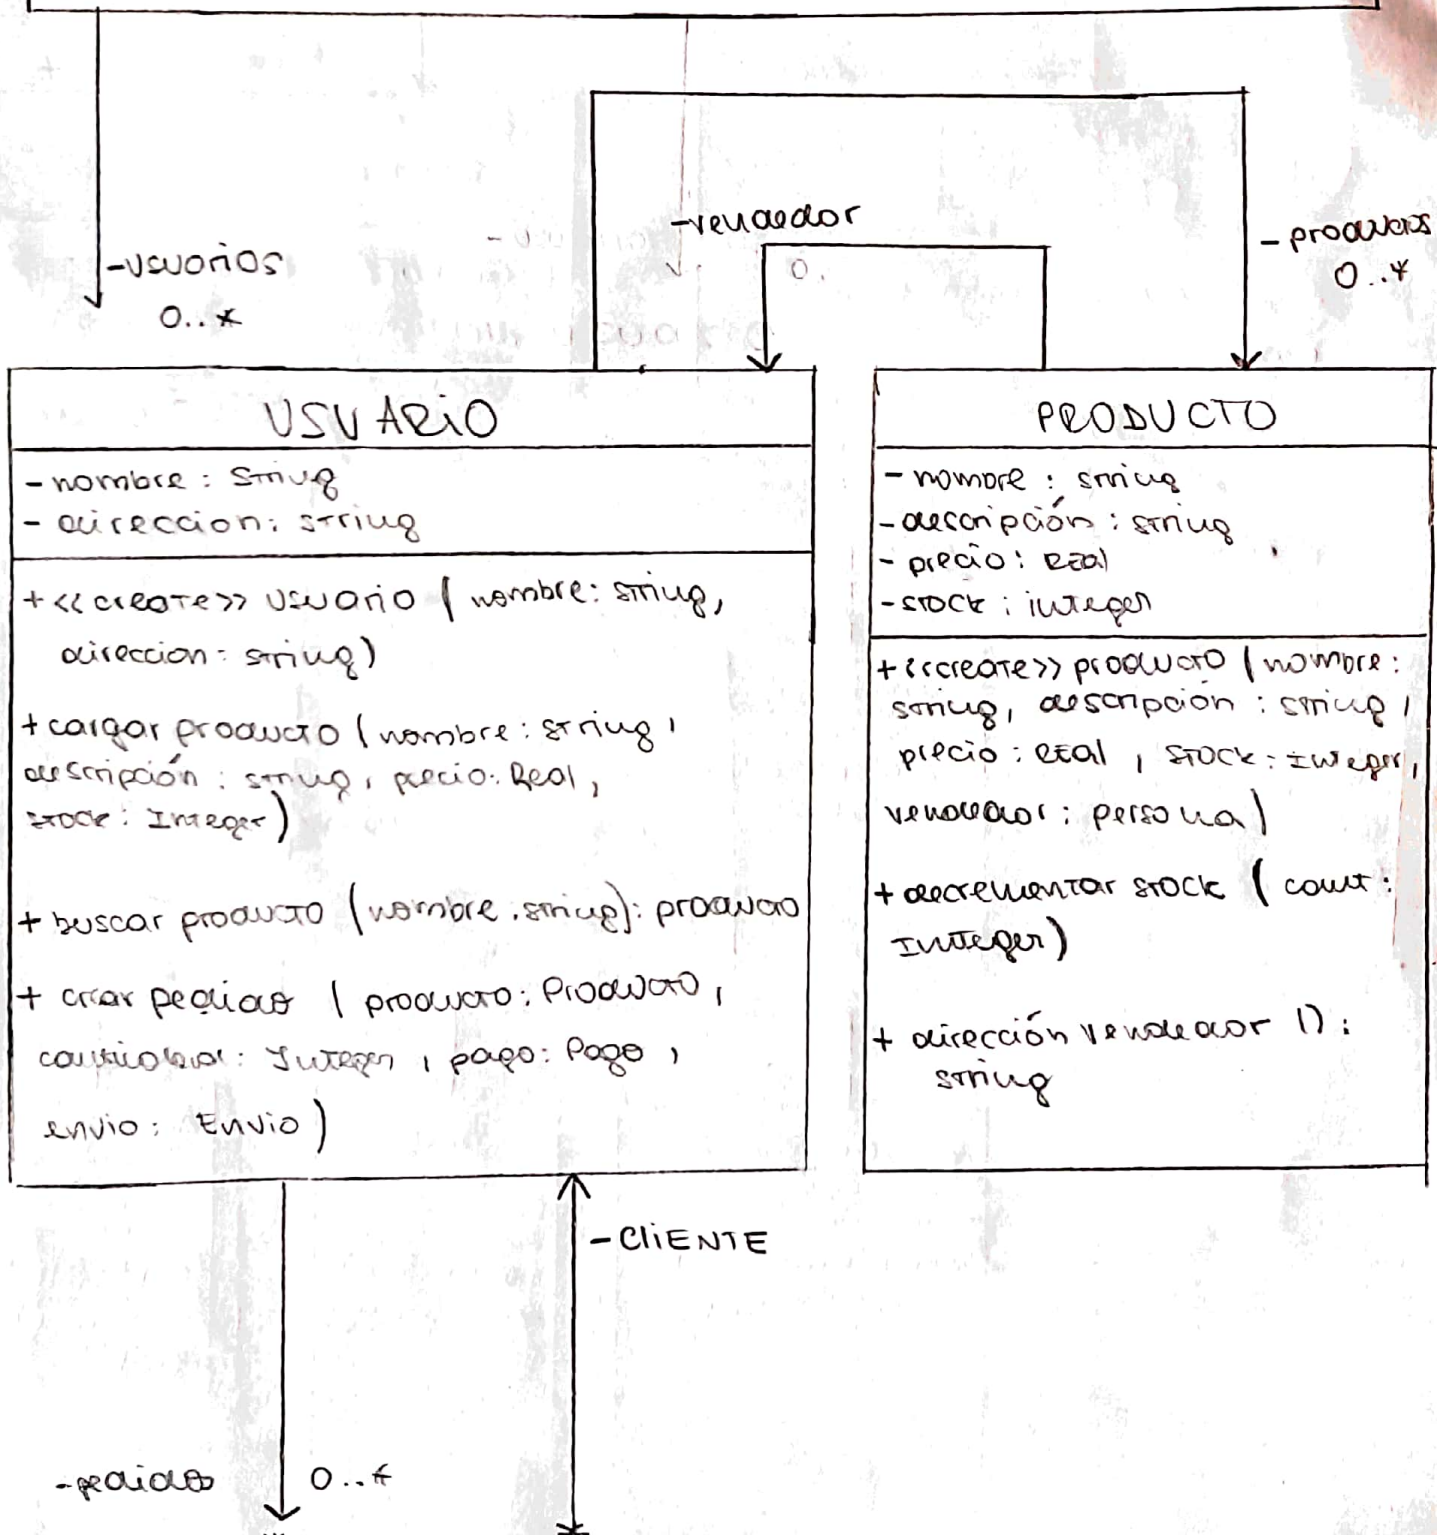 -vendedor
- productos
-usuarios
0..*
0..*
USUARIO
- nombre : String
- direccion: string
+ <<create>> usuario ( nombre: string,
direccion: string)
+ cargar producto ( nombre: string,
descripción : string, precio: Real,
stock: Integer)
+ buscar producto (nombre.string): producto
+ crear pedido ( producto: Producto,
cantidad: Integer, pago: Pago,
envio: Envio)
PRODUCTO
- nombre : string
- descripción : string
- precio: Real
- stock : integer
+ <<create>> producto ( nombre:
string, descripción : string,
precio : Real, stock: Integer,
vendedor: persona)
+ decrementar stock ( cant:
Integer)
+ dirección vendedor ():
string
- CliENTE
- pedidos 0..*